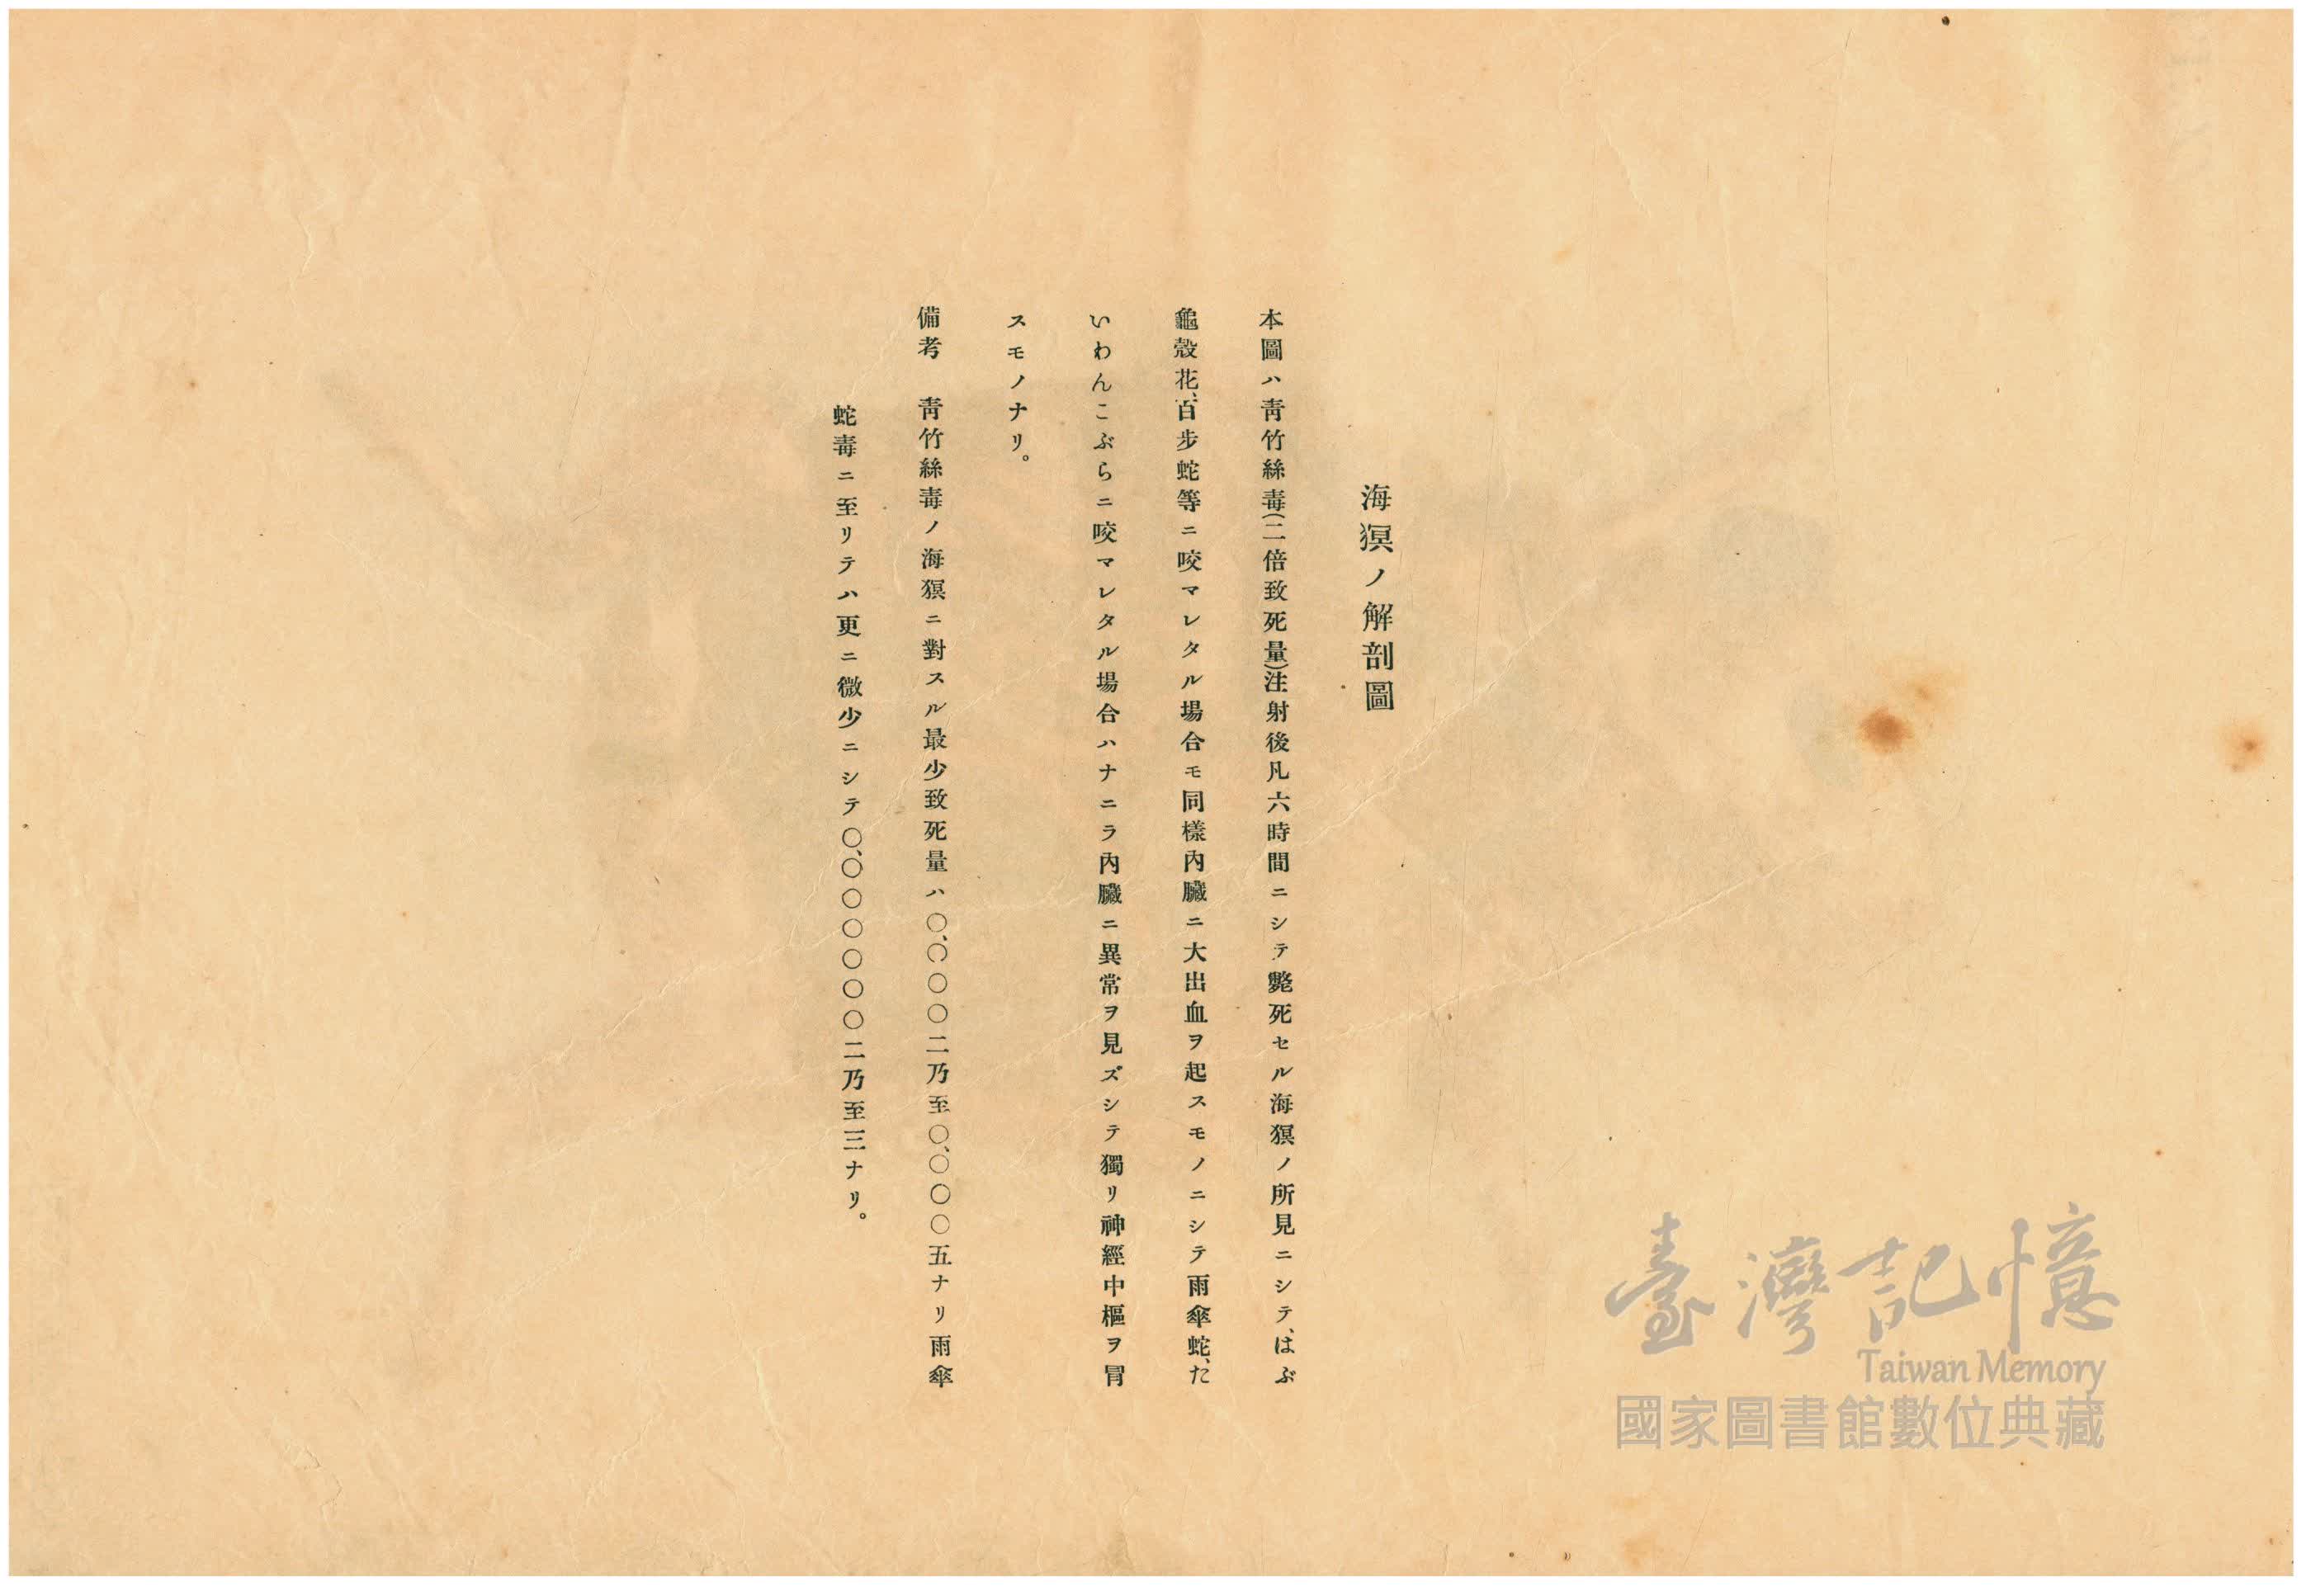 海猽ノ解剖圖
本圖ハ靑竹絲毒(二倍致死量)注射後凡六時間ニシテ斃死セル海猽ノ所見ニシテ、はぶ
龜殼花、百步蛇等ニ咬マレタル場合モ同樣內臟ニ大出血ヲ起スモノニシテ雨傘蛇、た
いわんこぶらニ咬マレタル場合ハナニラ內臟ニ異常ヲ見ズシテ獨リ神經中樞ヲ冐
スモノナリ。
備考 靑竹絲毒ノ海猽ニ對スル最少致死量ハ〇、〇〇〇二乃至〇、〇〇〇五ナリ雨傘
蛇毒ニ至リテハ更ニ微少ニシテ〇、〇〇〇〇〇〇二乃至三ナリ。
臺灣記憶
Taiwan Memory
國家圖書館數位典藏